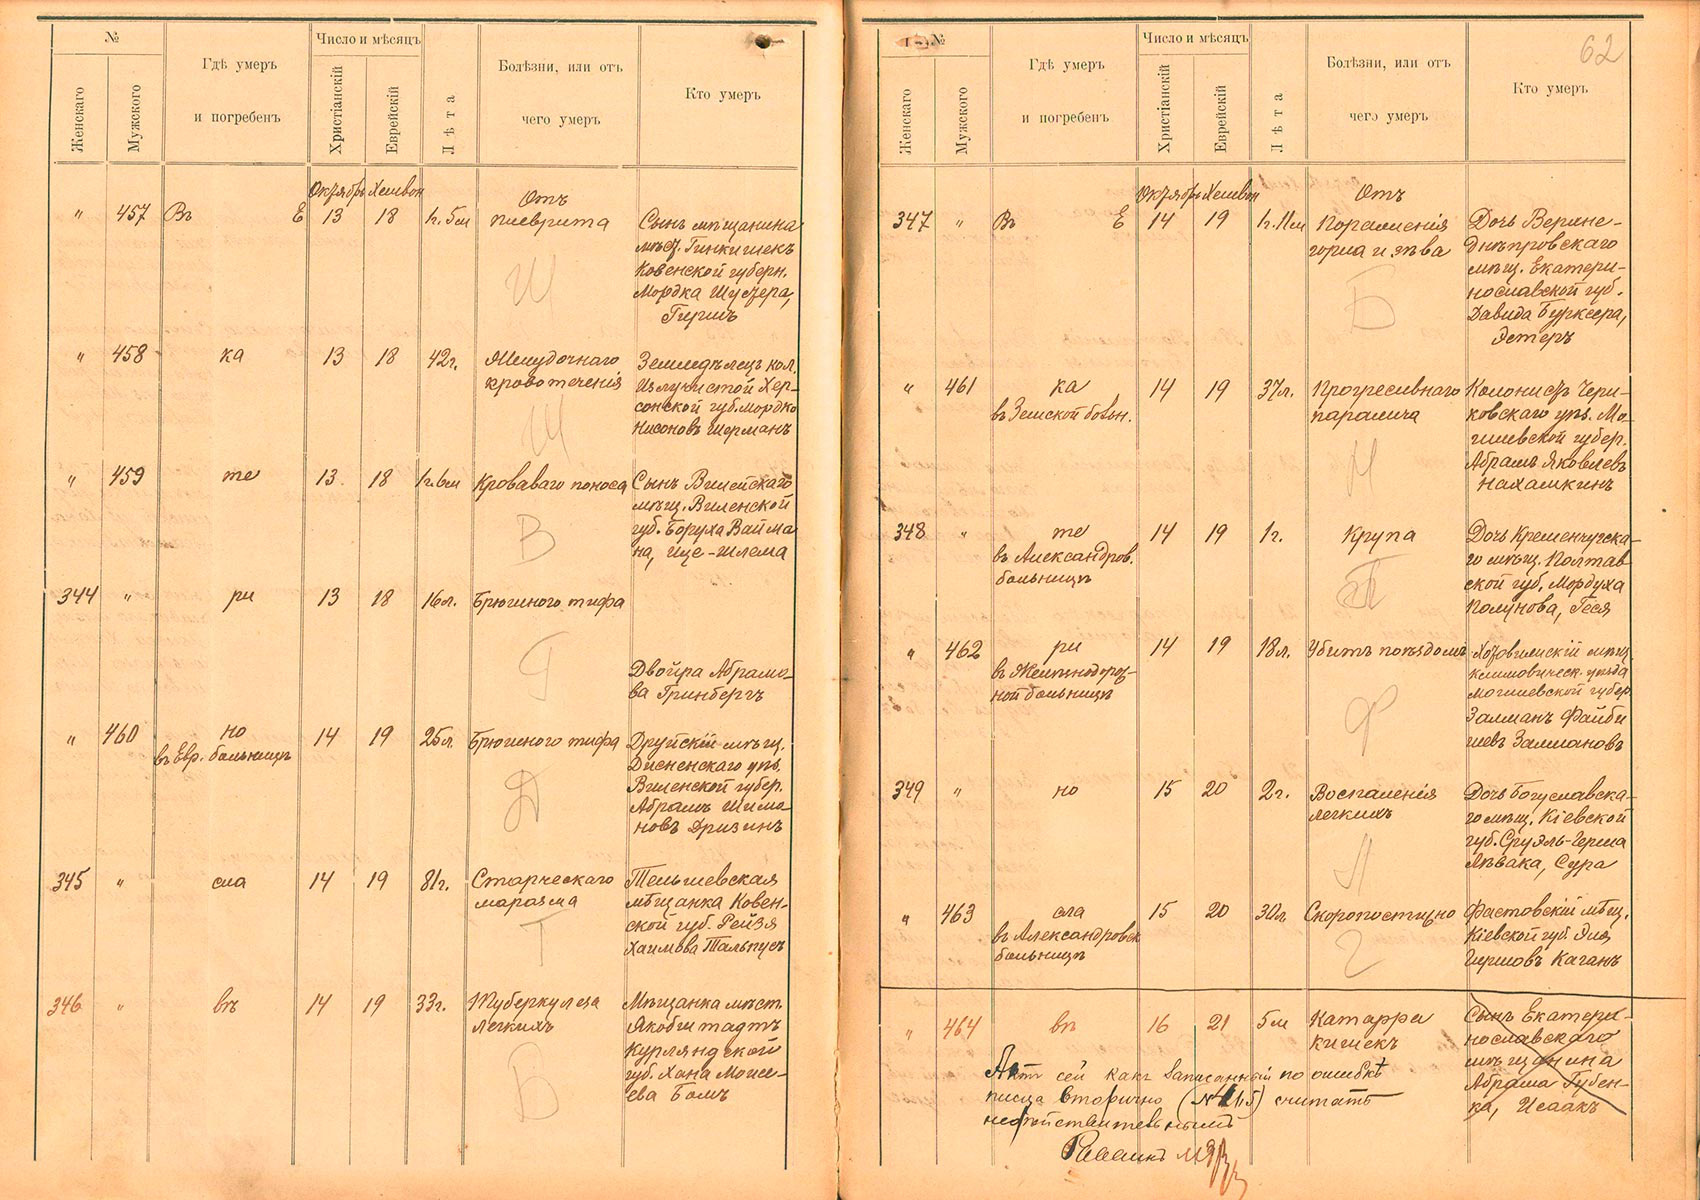 №
Женскаго
Мужского
Гдѣ умеръ
и погребенъ
Число и мѣсяцъ
Христіанскій
Еврейскій
Лѣта
Болѣзни, или отъ
чего умеръ
Кто умеръ
Октябрь Хешвон
Отъ
" 457 Въ Е 13 18 1г. 5м плеврита
Сынъ мѣщанина
мѣст. Гинкишекъ
Ковенской губерн.
Мордка Шустера,
Гиршъ
Ш
" 458 ка 13 18 42г. Желудочнаго
кровотеченія
Земледѣлецъ кол.
Излучистой Хер-
сонской губ. Мордко
Нисоновъ Шерманъ
Ш
" 459 те 13 18 1г. 6м Кроваваго поноса
Сынъ Вилейскаго
мѣщ. Виленской
губ. Боруха Вайма
на, Ице-Шлема
В
344 " ри 13 18 16л. Брюшного тифа
Двойра Абрамо-
ва Гринбергъ
Г
" 460 но 14 19 25л. Брюшного тифа
въ Евр. больницѣ
Друйскій мѣщ.
Дисненскаго уѣз.
Виленской губер.
Абрамъ Шимо
новъ Дризинъ
Д
345 " сла 14 19 81г. Старческаго
маразма
Тельшевская
мѣщанка Ковен-
ской губ. Рейзя
Хаимова Тальпусъ
Т
346 " въ 14 19 33г. Туберкулеза
легкихъ
Мѣщанка мѣст.
Якобштадтъ
Курляндской
губ. Хана Моисе-
ева Бомъ
Б
62
№
Женскаго
Мужского
Гдѣ умеръ
и погребенъ
Число и мѣсяцъ
Христіанскій
Еврейскій
Лѣта
Болѣзни, или отъ
чего умеръ
Кто умеръ
Октябрь Хешвон
Отъ
347 " Въ Е 14 19 1г. 11м Пораженія
горла и зѣва
Дочь Верхне-
днѣпровскаго
мѣщ. Екатери-
нославской губ.
Давида Бурксера,
Эстеръ
Б
" 461 ка 14 19 37л. Прогресивнаго
въ Земской больн. паралича
Колонистъ Чери-
ковскаго уѣз. Мо-
гилевской губер.
Абрамъ Яковлевъ
Нахамкинъ
Н
348 " те 14 19 1г. Крупа
въ Александров.
больницѣ
Дочь Кременчугска-
го мѣщ. Полтав
ской губ. Мордуха
Полунова, Геся
П
" 462 ри 14 19 18л. Убитъ поѣздомъ
въ Желѣзнодорож-
ной больницѣ
Хотовижскій мѣщ.
Климовическ. уѣзда
Могилевской губер
Залманъ Файби
шевъ Залмановъ
349 " но 15 20 2г. Воспаленія
легкихъ
Дочь Богуславска-
го мѣщ. Кіевской
губ. Сруэль-Герша
Лѣвака, Сура
Л
" 463 сла 15 20 30л. Скоропостижно
въ Александровск
больницѣ
Фастовскій мѣщ.
Кіевской губ. Эля
Гершовъ Каганъ
" 464 въ 16 21 5м Катарра
кишекъ
Сынъ Екатери-
нославскаго
мѣщанина
Абрама Губен-
ка, Исаакъ
Актъ сей какъ записанный по ошибкѣ
писца вторично считать
недѣйствительнымъ
Раввинъ